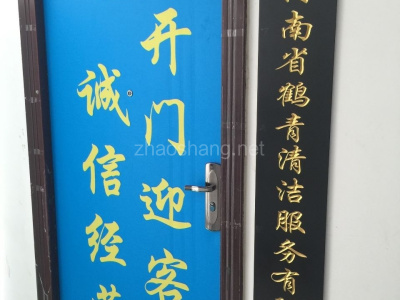 开门迎客
诚信经营
河南省鹤青清洁服务有限
zhaoshang.net